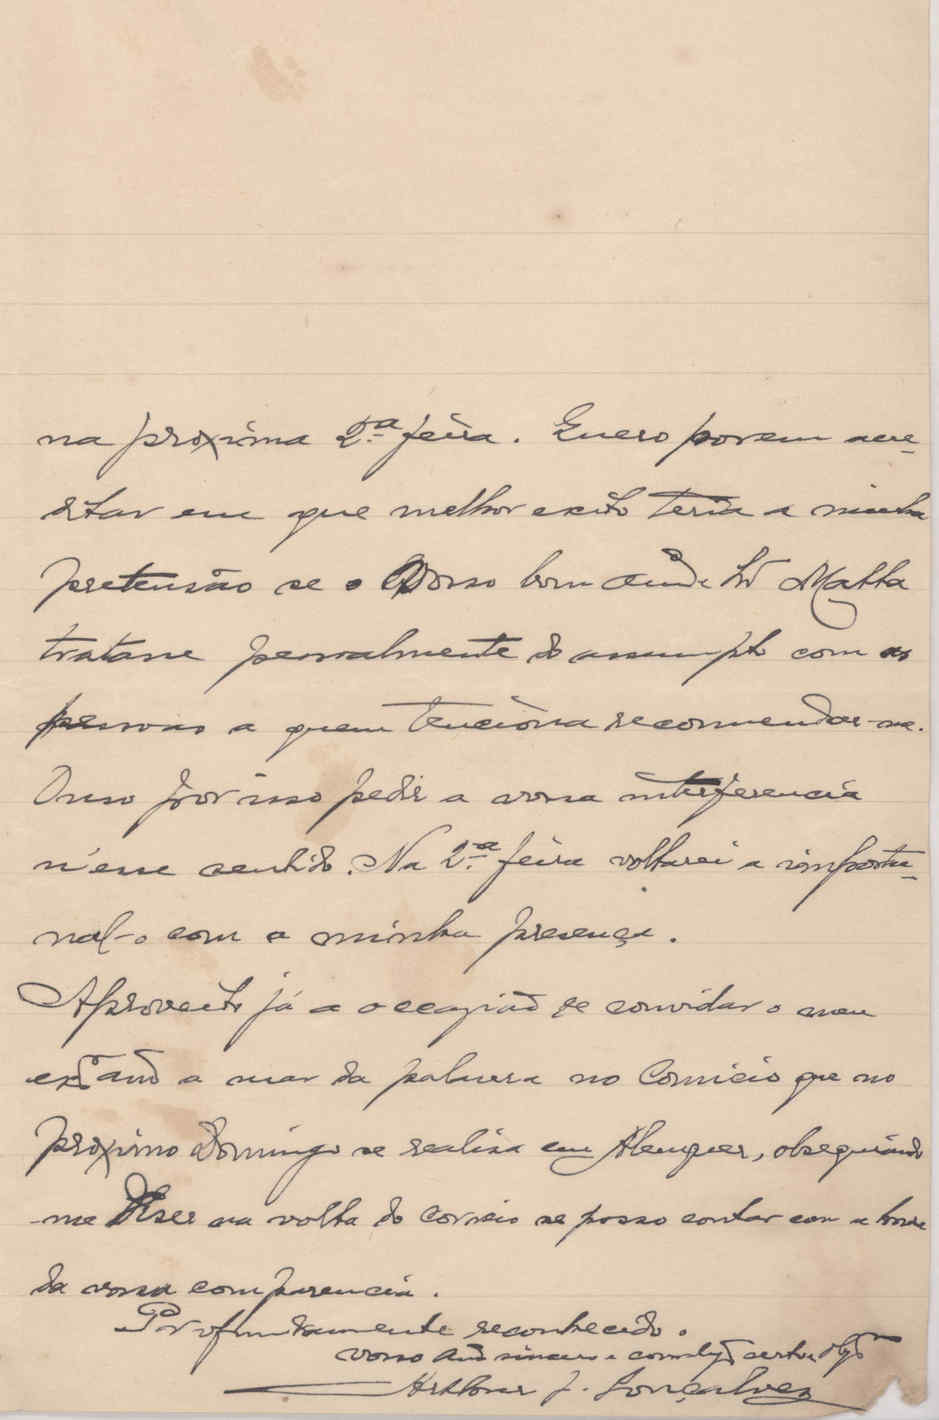 na proxima 2.ª feira. Quero porem acre-
ditar em que melhor exito teria a minha
pretensão se o Vosso bom amº Sr Matta
tratasse pessoalmente do assumpto com as
pessoas a quem tenciona recommendar-me.
Ouso por isso pedir a vossa interferencia
n'esse sentido. Na 2.ª feira voltarei a importu-
nal-o com a minha presença.
Aproveito já a occazião de convidar o meu
exmº amº a usar da palavra no Comicio que no
proximo Domingo se realisa em Alemquer, obsequiando
me dizer na volta do correio se posso contar com a honra
da vossa comparencia.
Profundamente reconhecido.
Vosso amº sincero e correlegº certo e obgº
J. Gonçalves